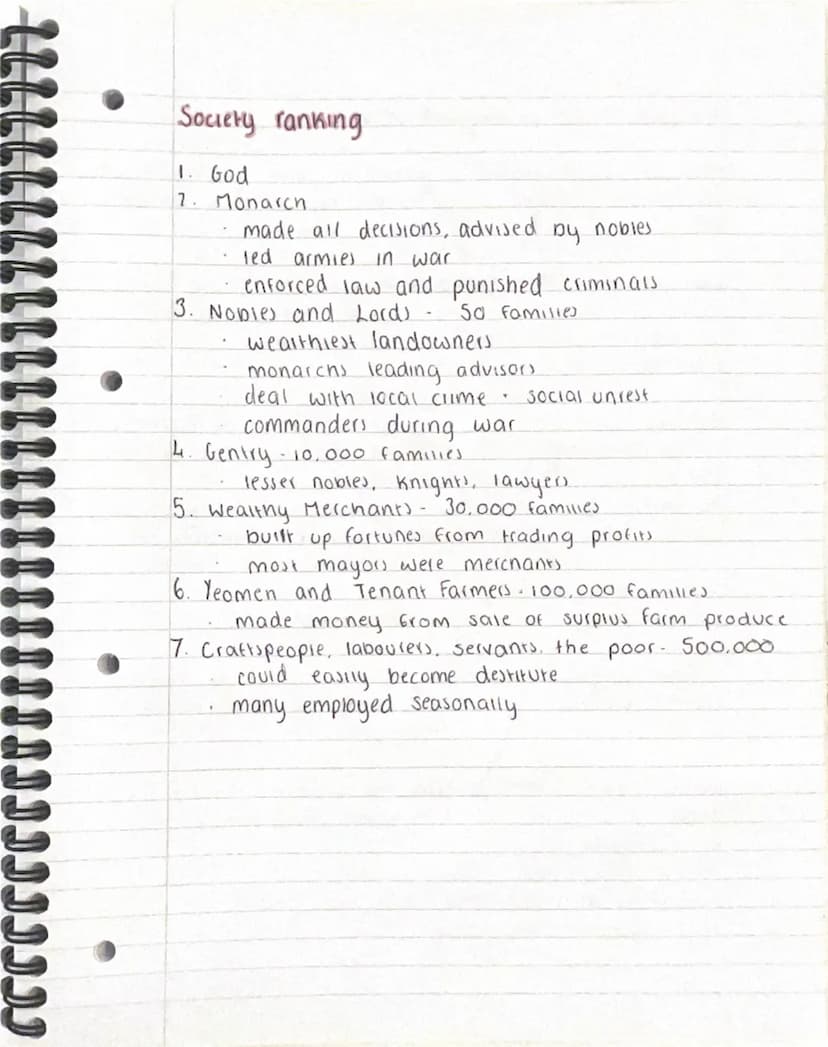 Society ranking
1. God
2. Monarch
· made all decisions, advised by nobles
· led armies in war
· enforced law and punished criminals
3. Nobles and Lords - 50 families
· wealthiest landowners
· monarchs leading advisors
· deal with local crime + social unrest
commanders during war
4. Gentry - 10,000 families
· lesser nobles, knights, lawyers
5. Wealthy Merchants - 30,000 families
· built up fortunes from trading profits
· most mayors were merchants
6. Yeomen and Tenant Farmers - 100,000 families
· made money from sale of surplus farm produce
7. Craftspeople, labourers, servants, the poor - 500,000
· could easily become destitute
· many employed seasonally